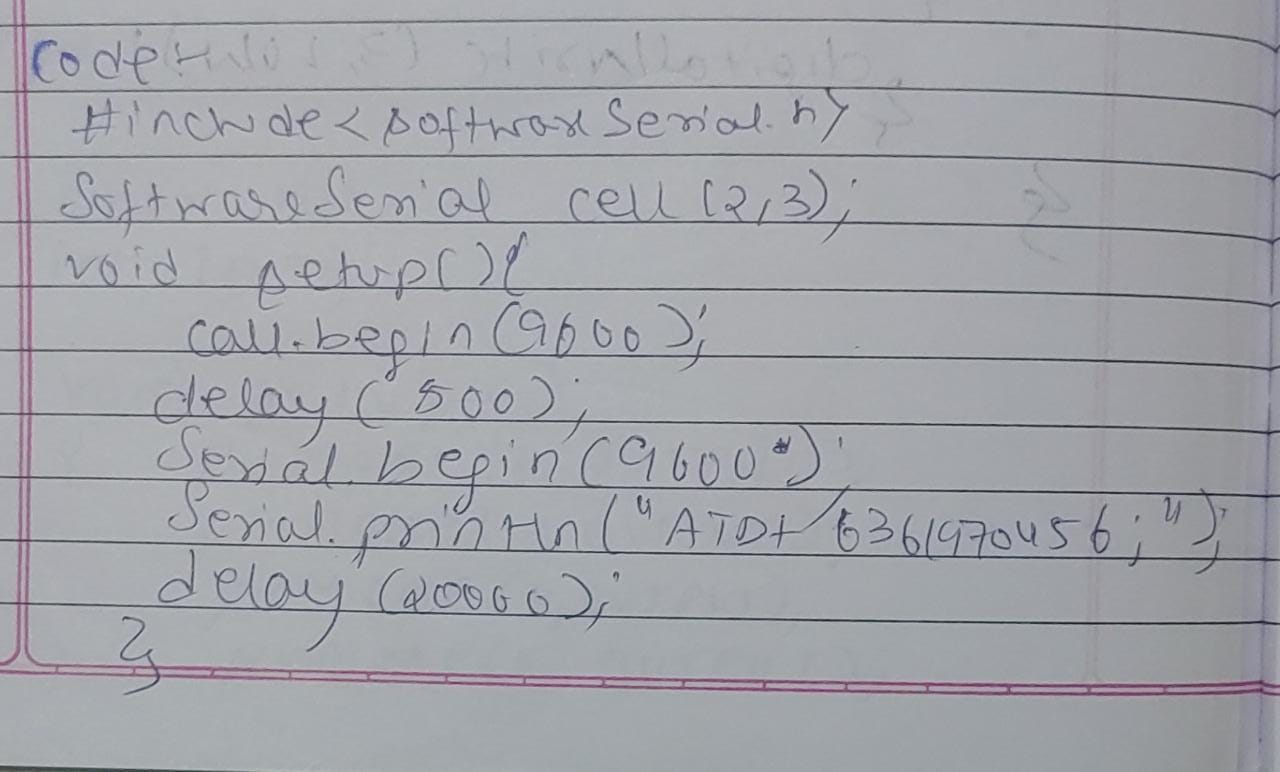 Code:-
#include<softwareSerial.h>
SoftwareSerial cell (2,3);
void setup(){
call.begin(9600);
delay(500);
Serial.begin(9600);
Serial.println("ATD+6361970456;");
delay(20000);
}